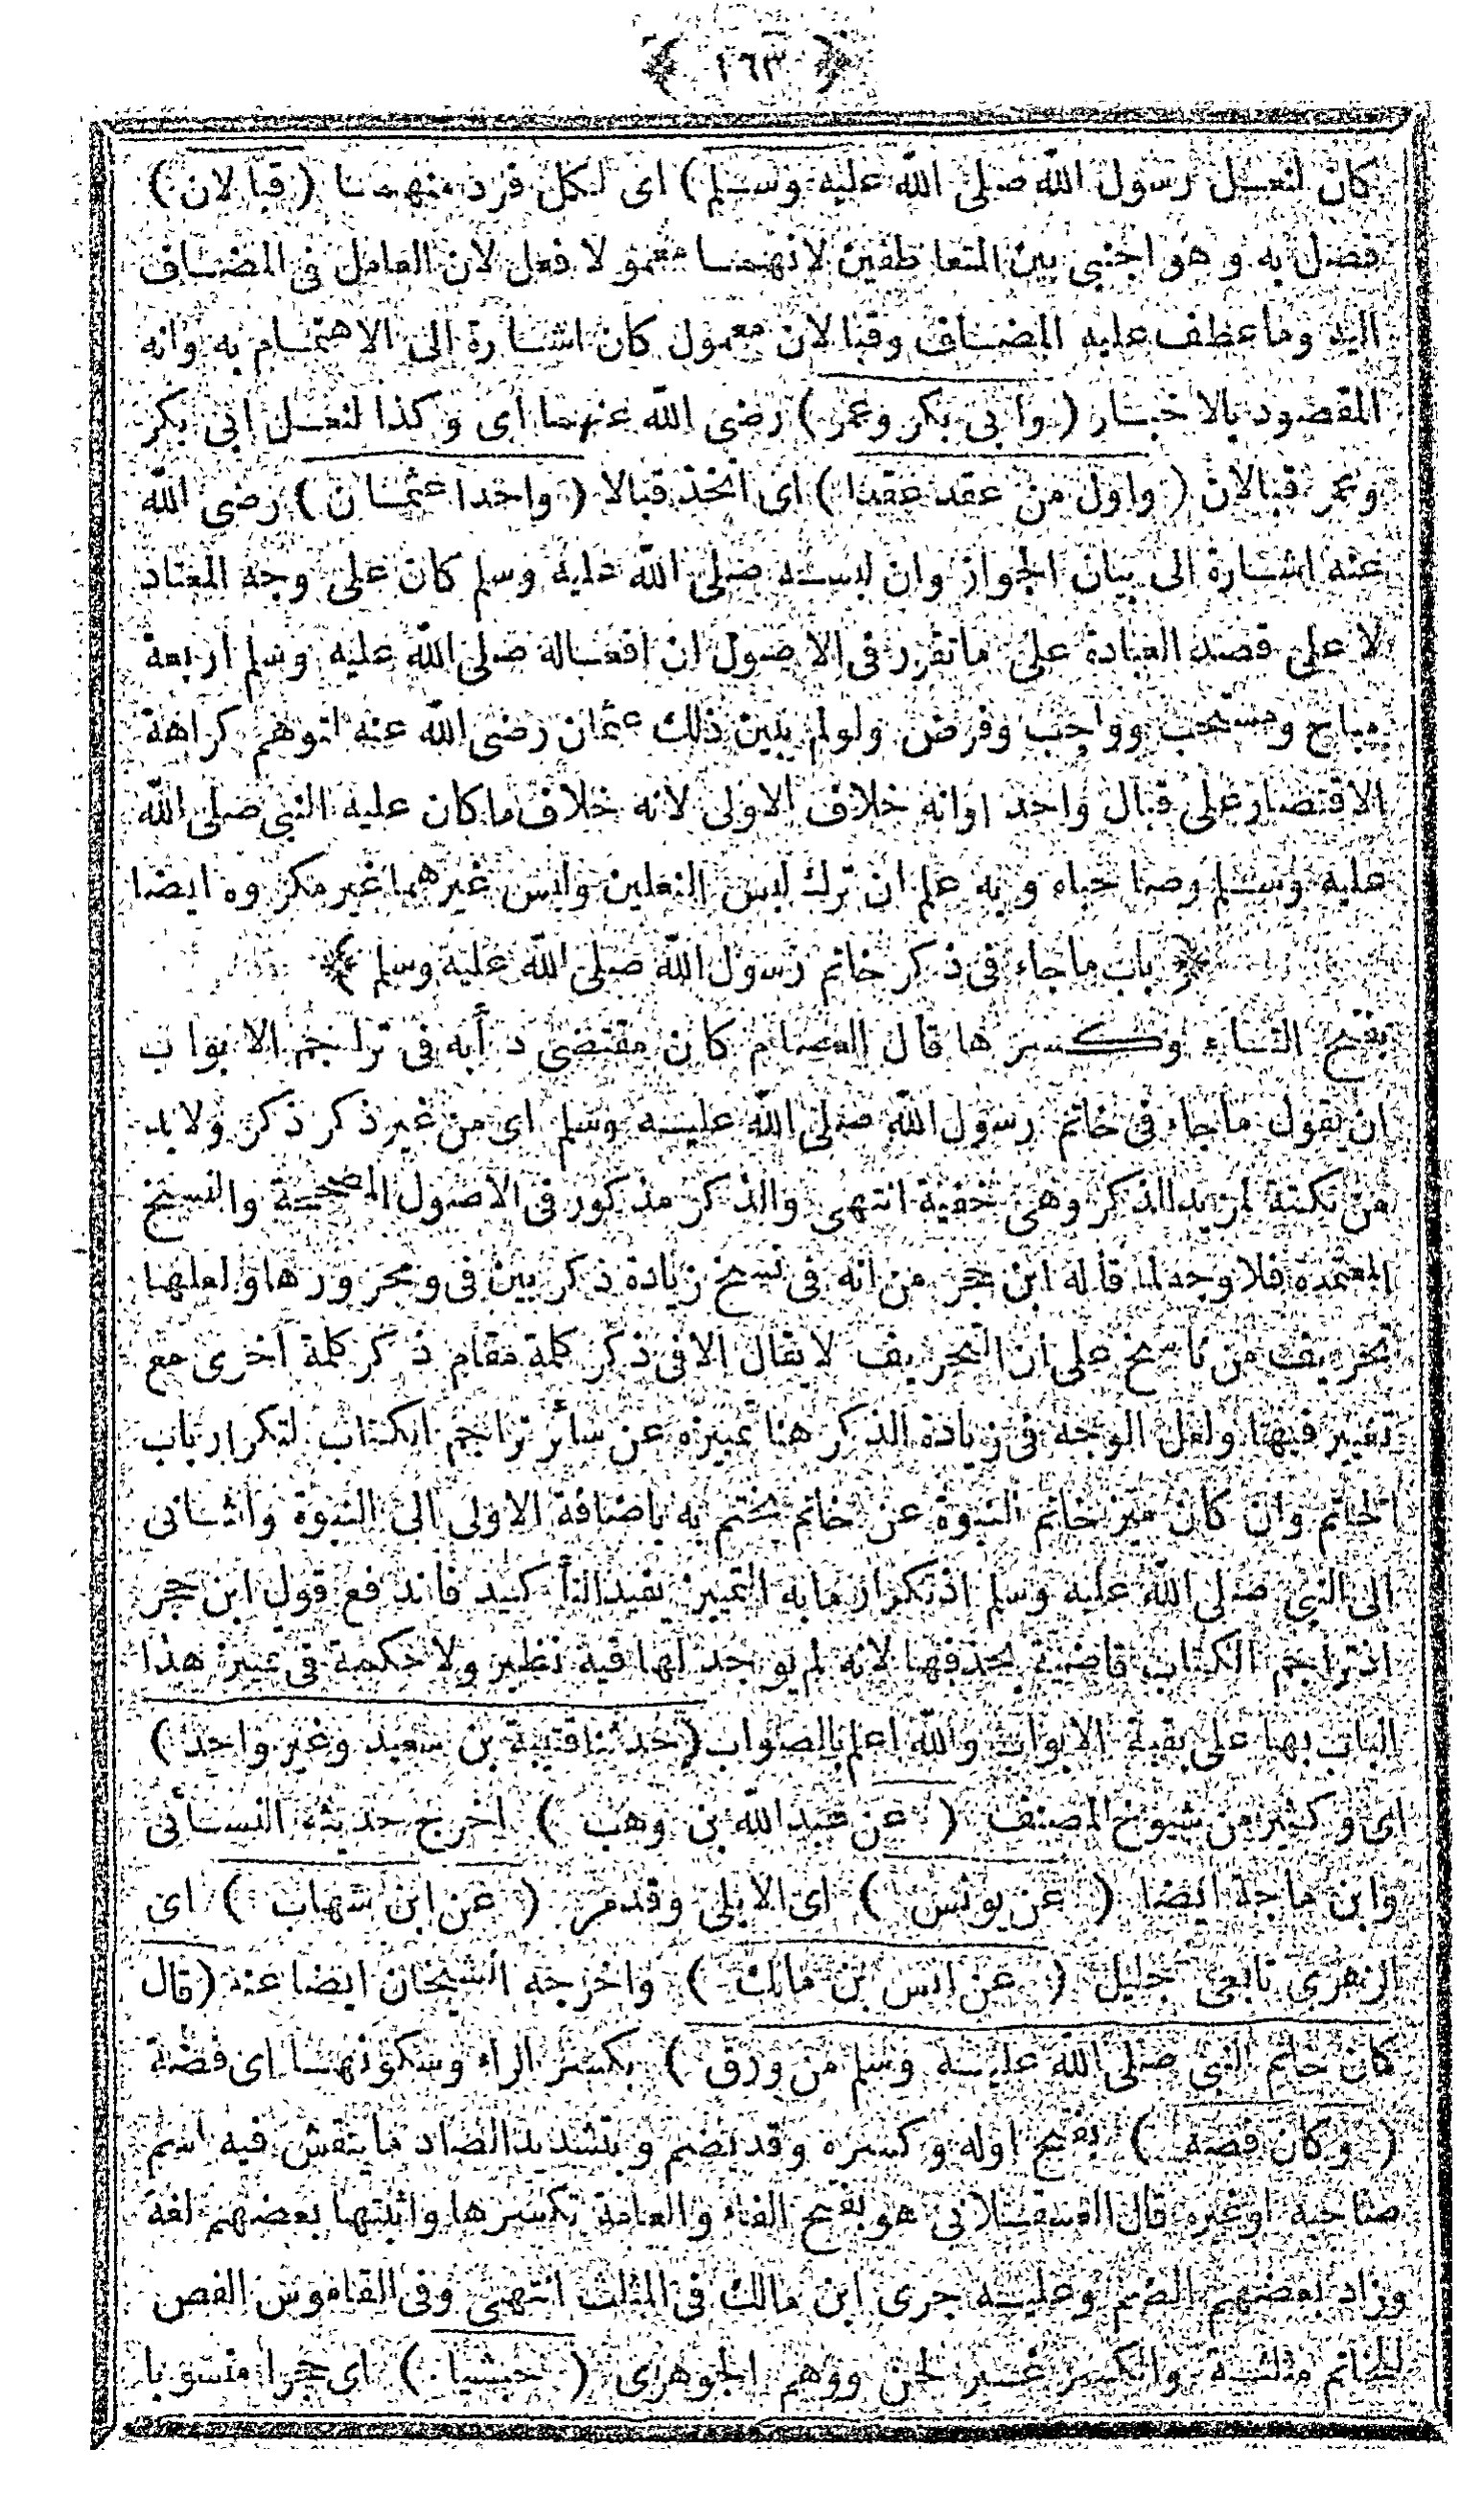 ﴿ ١٦٣ ﴾
كان لنعل رسول الله صلى الله عليه وسلم ) اى لكل فرد منهما ( قبالان )
فصل به و هو اجنبى بين المتعاطفين لانهما معمولا فعل لان العامل فى المضاف
اليه وما عطف عليه المضاف وقبالان معمول كان اشارة الى الاهتمام به وانه
المقصود بالاخبار ( وابى بكر وعمر ) رضى الله عنهما اى وكذا لنعل ابى بكر
وعمر قبالان ( واول من عقد عقدا ) اى اتخذ قبالا ( واحدا عثمان ) رضى الله
عنه اشارة الى بيان الجواز وان لبسه صلى الله عليه وسلم كان على وجه المعتاد
لا على قصد العبادة على ماتقرر فى الاصول ان افعاله صلى الله عليه وسلم اربعة
مباح ومستحب وواجب وفرض ولولم يبين ذلك عثمان رضى الله عنه لتوهم كراهة
الاقتصار على قبال واحد اوانه خلاف الاولى لانه خلاف ماكان عليه النبى صلى الله
عليه وسلم وصاحباه و به علم ان ترك لبس النعلين ولبس غيرهما غير مكروه ايضا
﴿ باب ماجاء فى ذكر خاتم رسول الله صلى الله عليه وسلم ﴾
بفتح التاء وكسرها قال العصام كان مقتضى دأبه فى تراجم الابواب
ان يقول ماجاء فى خاتم رسول الله صلى الله عليه وسلم اى من غير ذكر ذكر ولابد
من نكتة لمزيد الذكر وهى خفية انتهى والذكر مذكور فى الاصول المصححة والنسخ
المعتمدة فلا وجه لما قاله ابن حجر من انه فى نسخ زيادة ذكر بين فى ومجرورها ولعلها
تحريف من ناسخ على ان التحريف لايقال الا فى ذكر كلمة مقام ذكر كلمة اخرى مع
تغيير فيها ولعل الوجه فى زيادة الذكر هنا تميزه عن سائر تراجم الكتاب لتكرار باب
الخاتم وان كان ميز خاتم النبوة عن خاتم يختم به باضافة الاولى الى النبوة والثانى
الى النبى صلى الله عليه وسلم اذ تكرار مابه التمييز يفيد التأكيد فاندفع قول ابن حجر
ان تراجم الكتاب قاضية بحذفها لانه لم يوجد لها فيه نظير ولا حكمة فى تمييز هذا
الباب بها على بقية الابواب والله اعلم بالصواب ( حدثنا قتيبة بن سعيد وغير واحد )
اى وكثير من شيوخ المصنف ( عن عبد الله بن وهب ) اخرج حديثه النسائى
وابن ماجة ايضا ( عن يونس ) اى الايلى وقد مر ( عن ابن شهاب ) اى
الزهرى تابعى جليل ( عن انس بن مالك ) واخرجه الشيخان ايضا عنه ( قال
كان خاتم النبى صلى الله عليه وسلم من ورق ) بكسر الراء وسكونها اى فضة
( وكان فصه ) بفتح اوله وكسره وقد تضم و بتشديد الصاد ماينقش فيه اسم
صاحبه او غيره قال العسقلانى هو بفتح الفاء والعامة تكسرها واثبتها بعضهم لغة
وزاد بعضهم الضم وعليه جرى ابن مالك فى المثلث انتهى وفى القاموس الفص
للخاتم مثلثة والكسر غير لحن ووهم الجوهرى ( حبشيا ) اى حجرا منسوبا